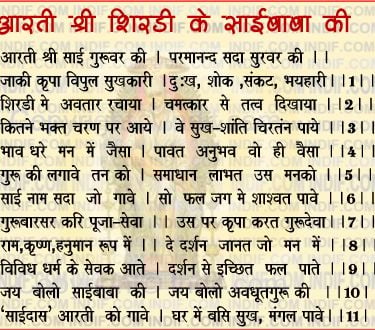 आरती श्री शिरडी के साईबाबा की
आरती श्री साई गुरूवर की । परमानन्द सदा सुरवर की ।।
जाकी कृपा विपुल सुखकारी । दु:ख, शोक ,संकट, भयहारी ।।1।।
शिरडी मे अवतार रचाया । चमत्कार से तत्व दिखाया ।।2।।
कितने भक्त चरण पर आये । वे सुख-शांति चिरतंन पाये ।।3।।
भाव धरे मन में जैसा । पावत अनुभव वो ही वैसा ।।4।।
गुरू की लगावे तन को । समाधान लाभत उस मनको ।।5।।
साई नाम सदा जो गावे । सो फल जग मे शाश्वत पावे ।।6।।
गुरूबारसर करि पूजा-सेवा । उस पर कृपा करत गुरूदेवा ।।7।।
राम,कृष्ण,हनुमान रूप में ।। दे दर्शन जानत जो मन में ।।8।।
विविध धर्म के सेवक आते । दर्शन से इच्छित फल पाते ।।9।।
जय बोलो साईबाबा की । जय बोलो अवधूतगुरू की ।।10।
‘साईदास’ आरती को गावे । घर में बसि सुख, मंगल पावे।।11।